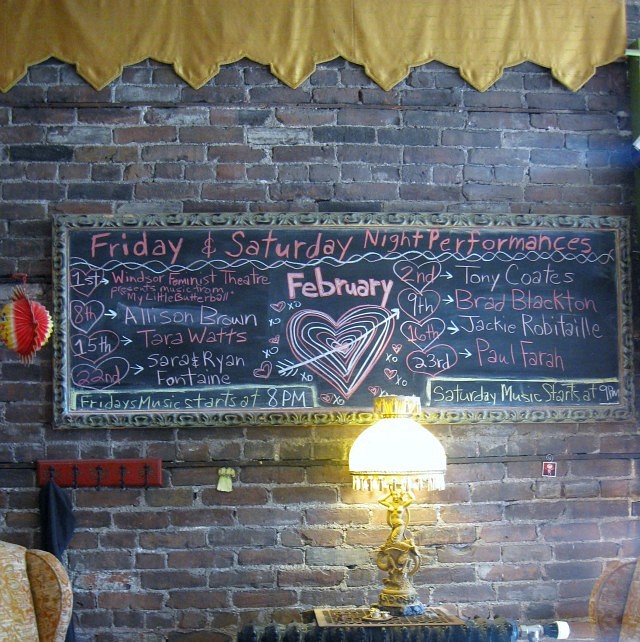 Friday & Saturday Night Performances
1st → Windsor Feminist Theatre
presents music from
"My Little Butterball"
8th → Allison Brown
15th → Tara Watts
22nd → Sara & Ryan
Fontaine
Fridays Music starts at 8 PM
February
XO
XO
XO
XO
XO
XO
XO
XO
2nd → Tony Coates
9th → Brad Blackton
16th → Jackie Robitaille
23rd → Paul Farah
Saturday Music Starts at 9PM